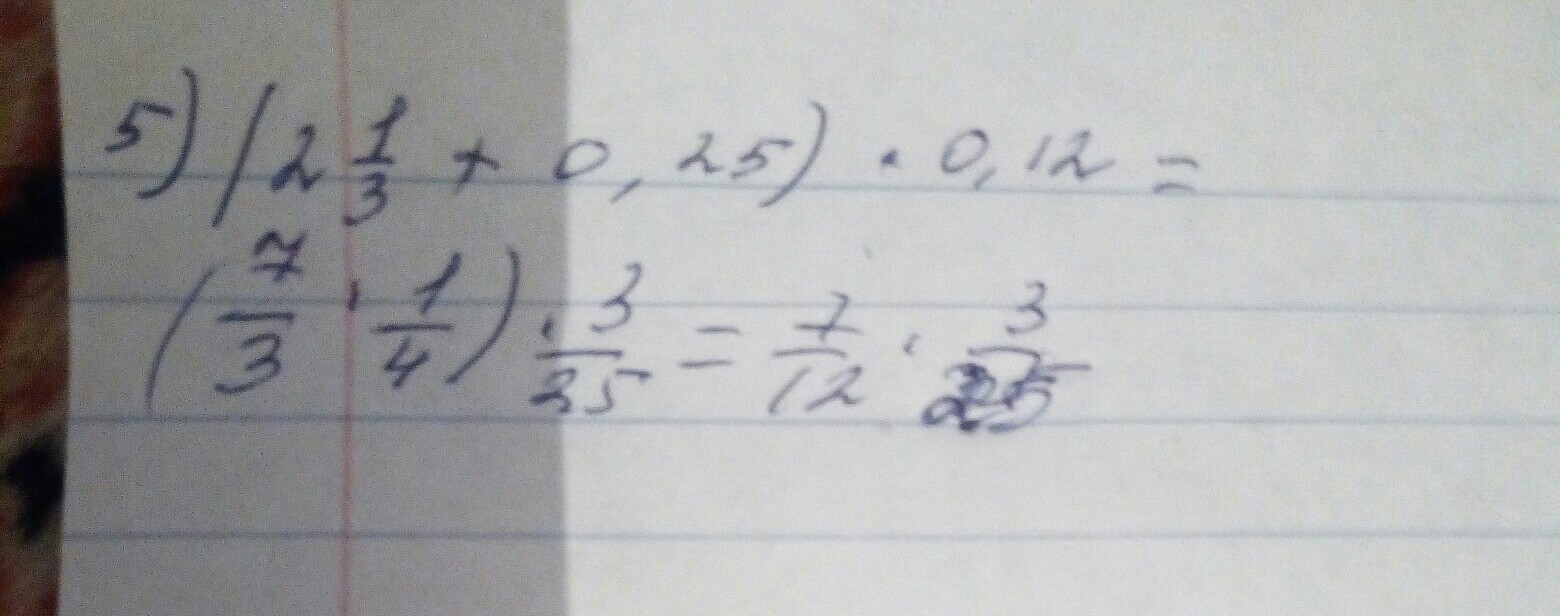 5) (2 1/3 + 0,25) · 0,12 =
(7/3 · 1/4) · 3/25 = 7/12 · 3/25